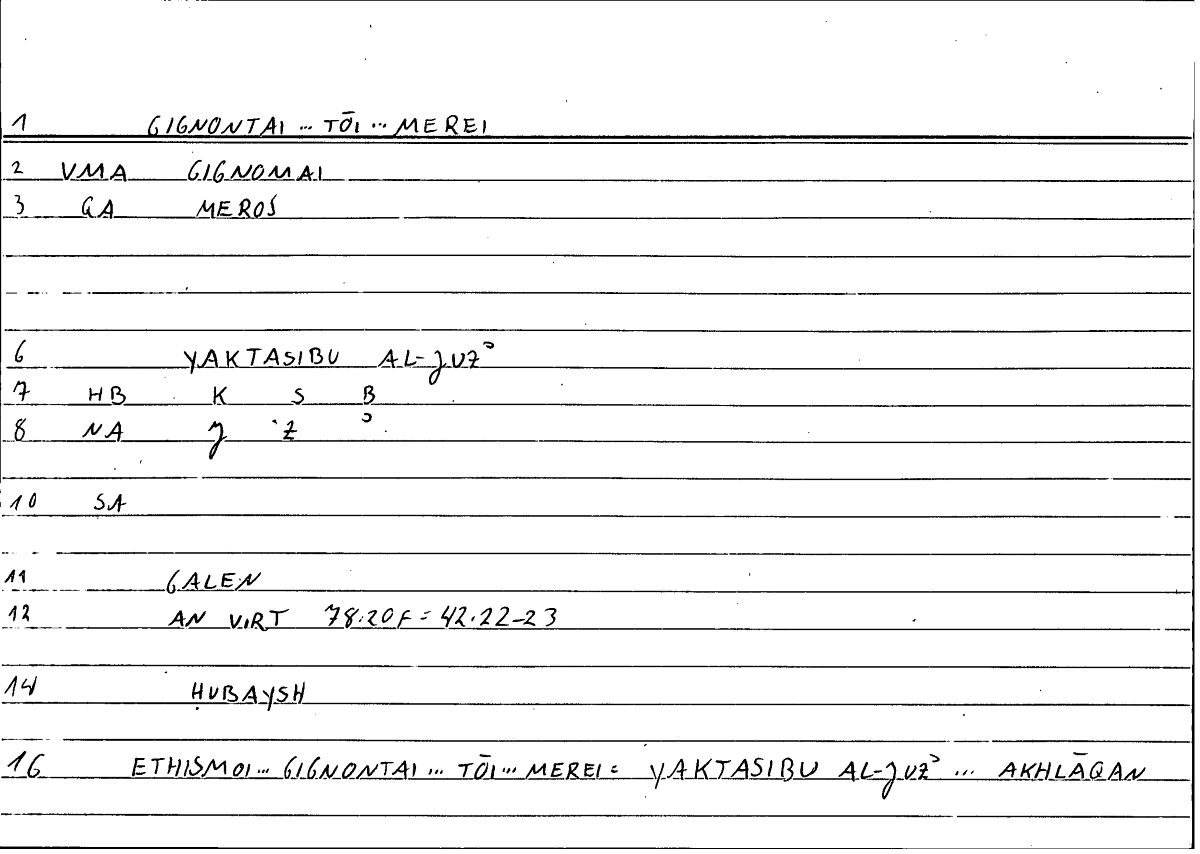 1 GIGNONTAI ... TŌI ... MEREI
2 VMA GIGNOMAI
3 GA MEROS
6 YAKTASIBU AL-JUZʾ
7 HB K S B
8 NA J Z ʾ
10 SA
11 GALEN
12 AN VIRT 78.20F = 42.22-23
14 ḤUBAYSH
16 ETHISMOI ... GIGNONTAI ... TŌI ... MEREI = YAKTASIBU AL-JUZʾ ... AKHLĀQAN